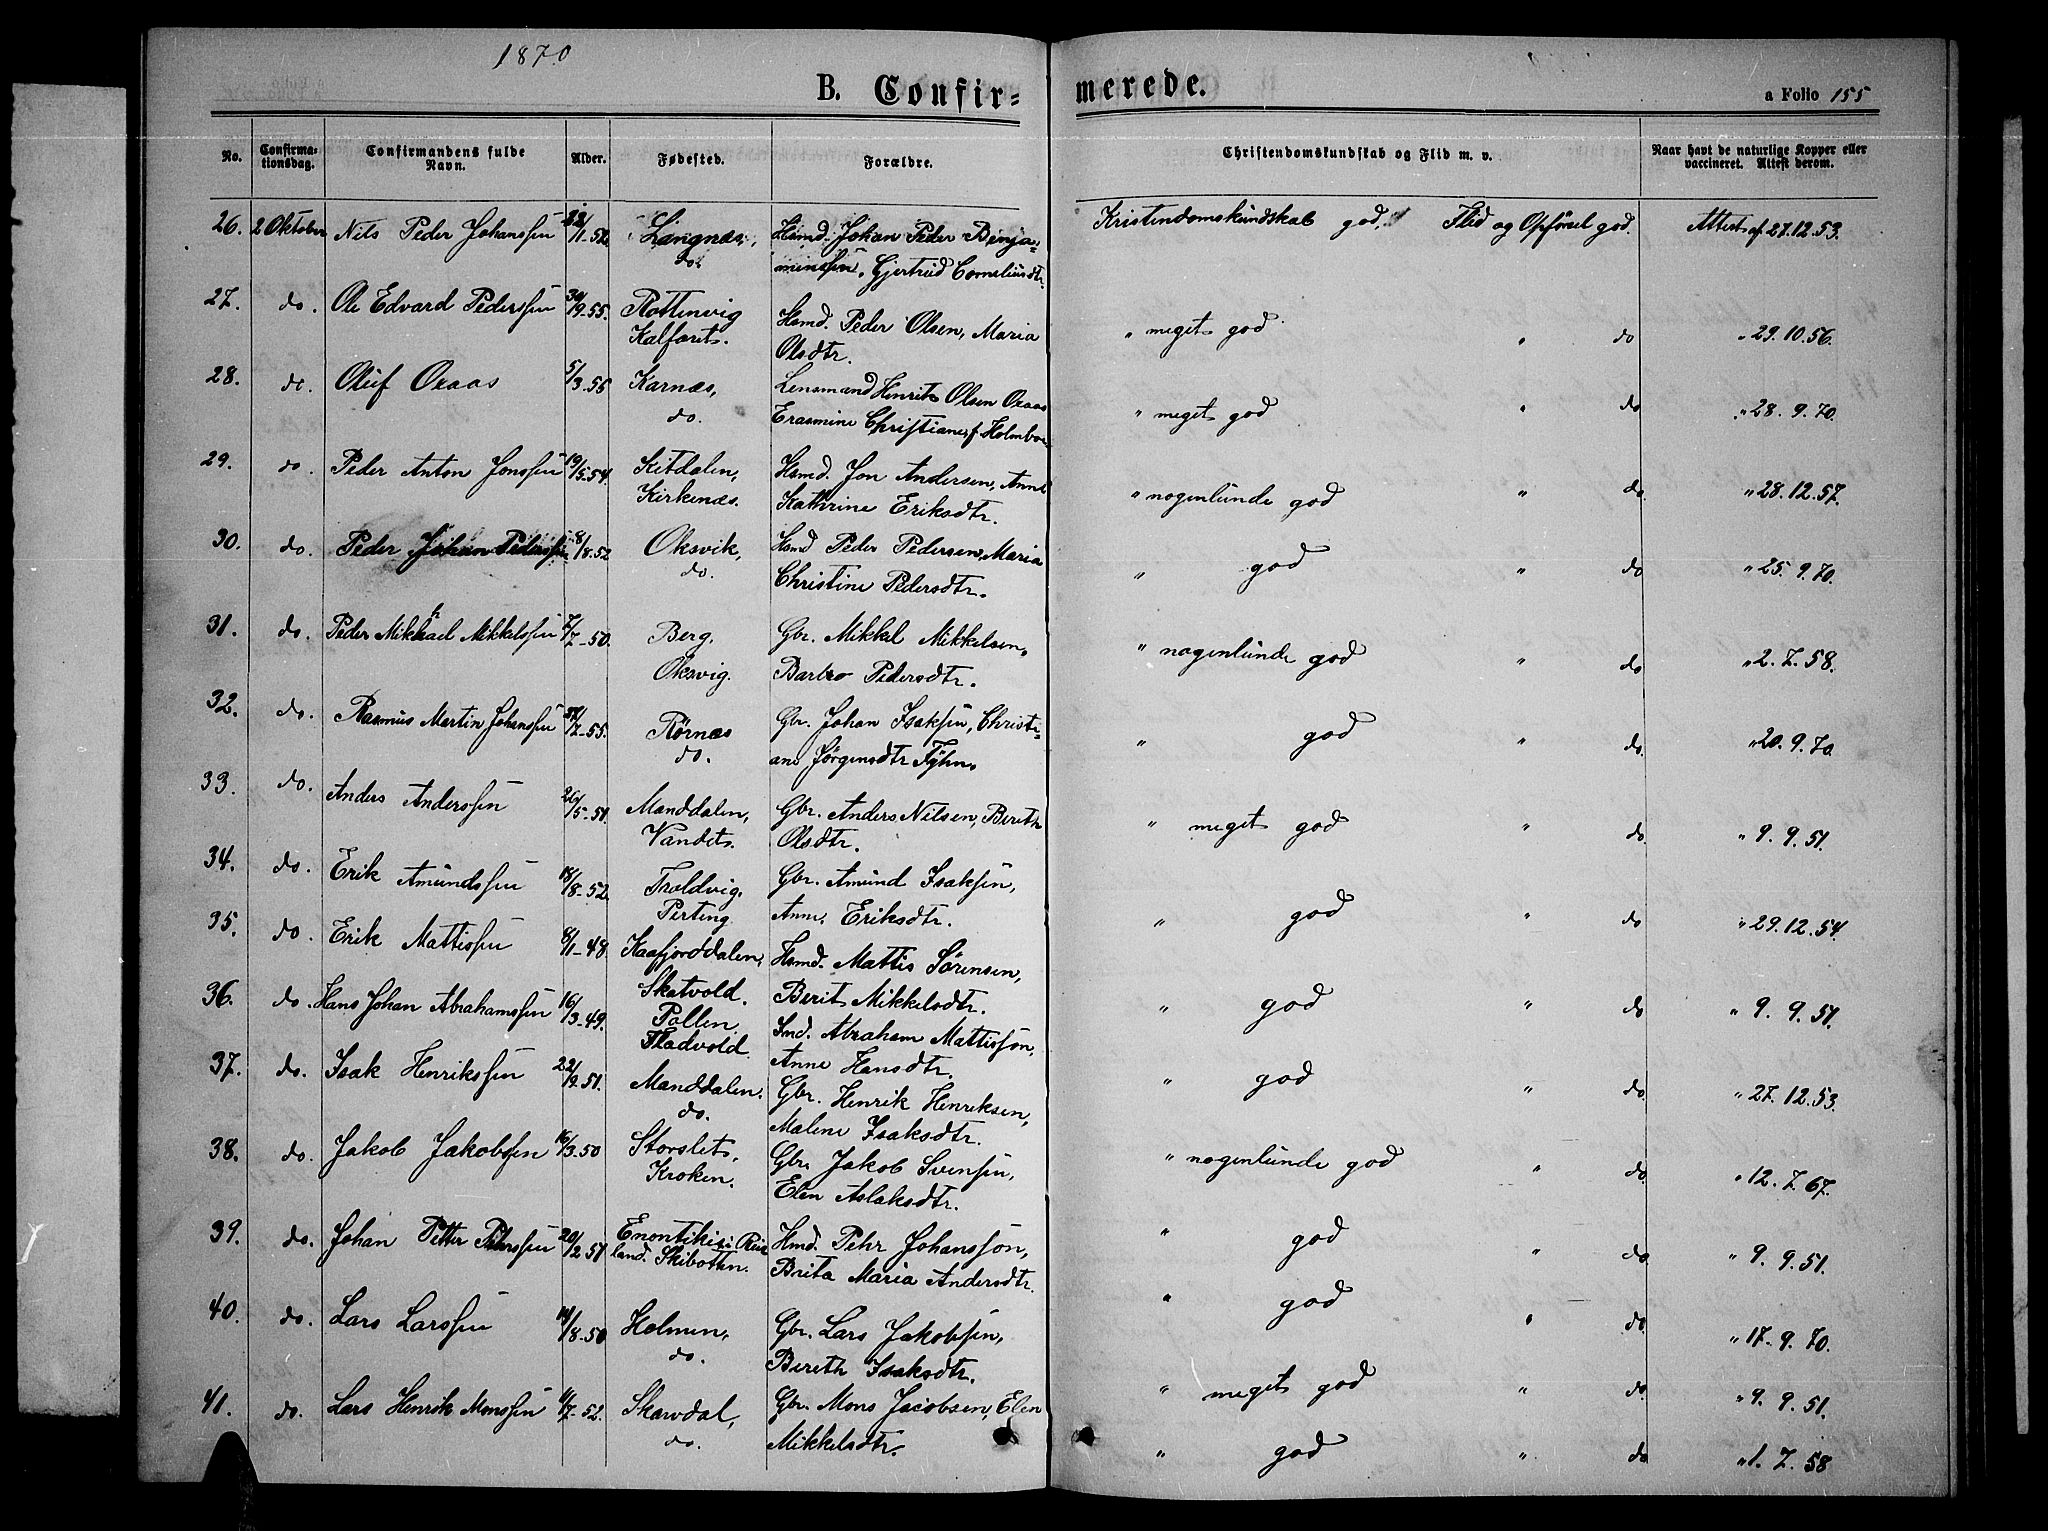 1870
B. Confir=
merede.
a Folio 155
No.
Confirma=
tionsdag.
Confirmandens fulde
Navn.
Alder.
Fødested.
Forældre.
Christendomskundskab og Flid m. v.
Naar havt de naturlige Kopper eller
vaccineret. Attest derom.
26. 2 Oktober Nils Peder Johanssen 11-52. Langnæs, Hsmd. Johan Peder Benja= Kristendomskundskab god, Flid og Opførsel god. Attest af 27.12.53.
do. minssen, Gjertrud Corneliusdtr.
27. do. Ole Edvard Pederssen 30/9-55. Rottenvig Hsmd. Peder Olsen, Maria " meget god " do " 29.10.56.
Kalfaret. Olsdtr.
28. do. Oluf Oxaas 5/3-55 Karnæs, Lensmand Henrik Olsen Oxaas " meget god " do " 28.9.70.
do. Erasmine Christiane f. Holmboe
29. do. Peder Anton Jonssen 19/5-54. Kitdalen, Hsmd. Jon Andersen, Anne " nogenlunde god " do " 28.12.57.
Kirkenæs. Kathrine Eriksdtr.
30. do. Peder Johan Pederssen 8/8-52 Oksvik, Hsmd Peder Pedersen, Maria " god " do " 25.9.70.
do. Christine Pedersdtr.
31. do. Peder Mikhael Mikkelssen 7/7-50. Berg. Gbr. Mikkel Mikkelsen, " nogenlunde god " do " 2.7.58.
Oksvig. Barbro Pedersdtr.
32. do. Rasmus Martin Johanssen 7-55. Rørnæs Gbr. Johan Isaksen, Christi= " god " do. " 20.9.70
do. ane Jørgensdtr Fyhn.
33. do. Anders Anderssen 26/5-51. Manddalen, Gbr. Anders Nilsen, Bereth " meget god " do. " 9.9.51.
Vandet. Olsdtr.
34. do. Erik Amundssen 18/8-52. Troldvig. Gbr. Amund Isaksen, " god " do " 29.12.54.
Perting. Anne Eriksdtr.
35. do. Erik Mattissen 8/1-48 Kaafjorddalen, Hsmd. Mattis Sørensen, " god " do " 9.9.51.
Skatvold. Berit Mikkelsdtr.
36. do. Hans Johan Abrahamssen 16/3-49. Pollen. Smd. Abraham Mattisson, " god " do. " 27.12.53.
Fladvold. Anne Hansdtr.
37. do. Isak Henrikssen 22/9-51. Manddalen. Gbr. Henrik Henriksen, " nogenlunde god " do. " 12.7.67.
do. Malene Isaksdtr.
38. do. Jakob Jakobssen 16/3-50 Storslet, Gbr. Jakob Svensen, " god " do. " 9.9.51.
Kroken. Elen Aslaksdtr.
39. do. Johan Petter Pehrssen 20/2-51 Enontikis i Rus Hmd. Pehr Johansson, " god " do. " 17.9.70.
land. Skibotten. Brita Maria Andersdtr.
40. do. Lars Larssen 14/8-50 Holmen, Gbr. Lars Jakobsen, " meget god " do. " 9.9.51.
do. Bereth Isaksdtr.
41. do. Lars Henrik Monssen 11/7-52. Skardal, Gbr. Mons Jacobsen, Elen " god " do " 1.7.58
do. Mikkelsdtr.